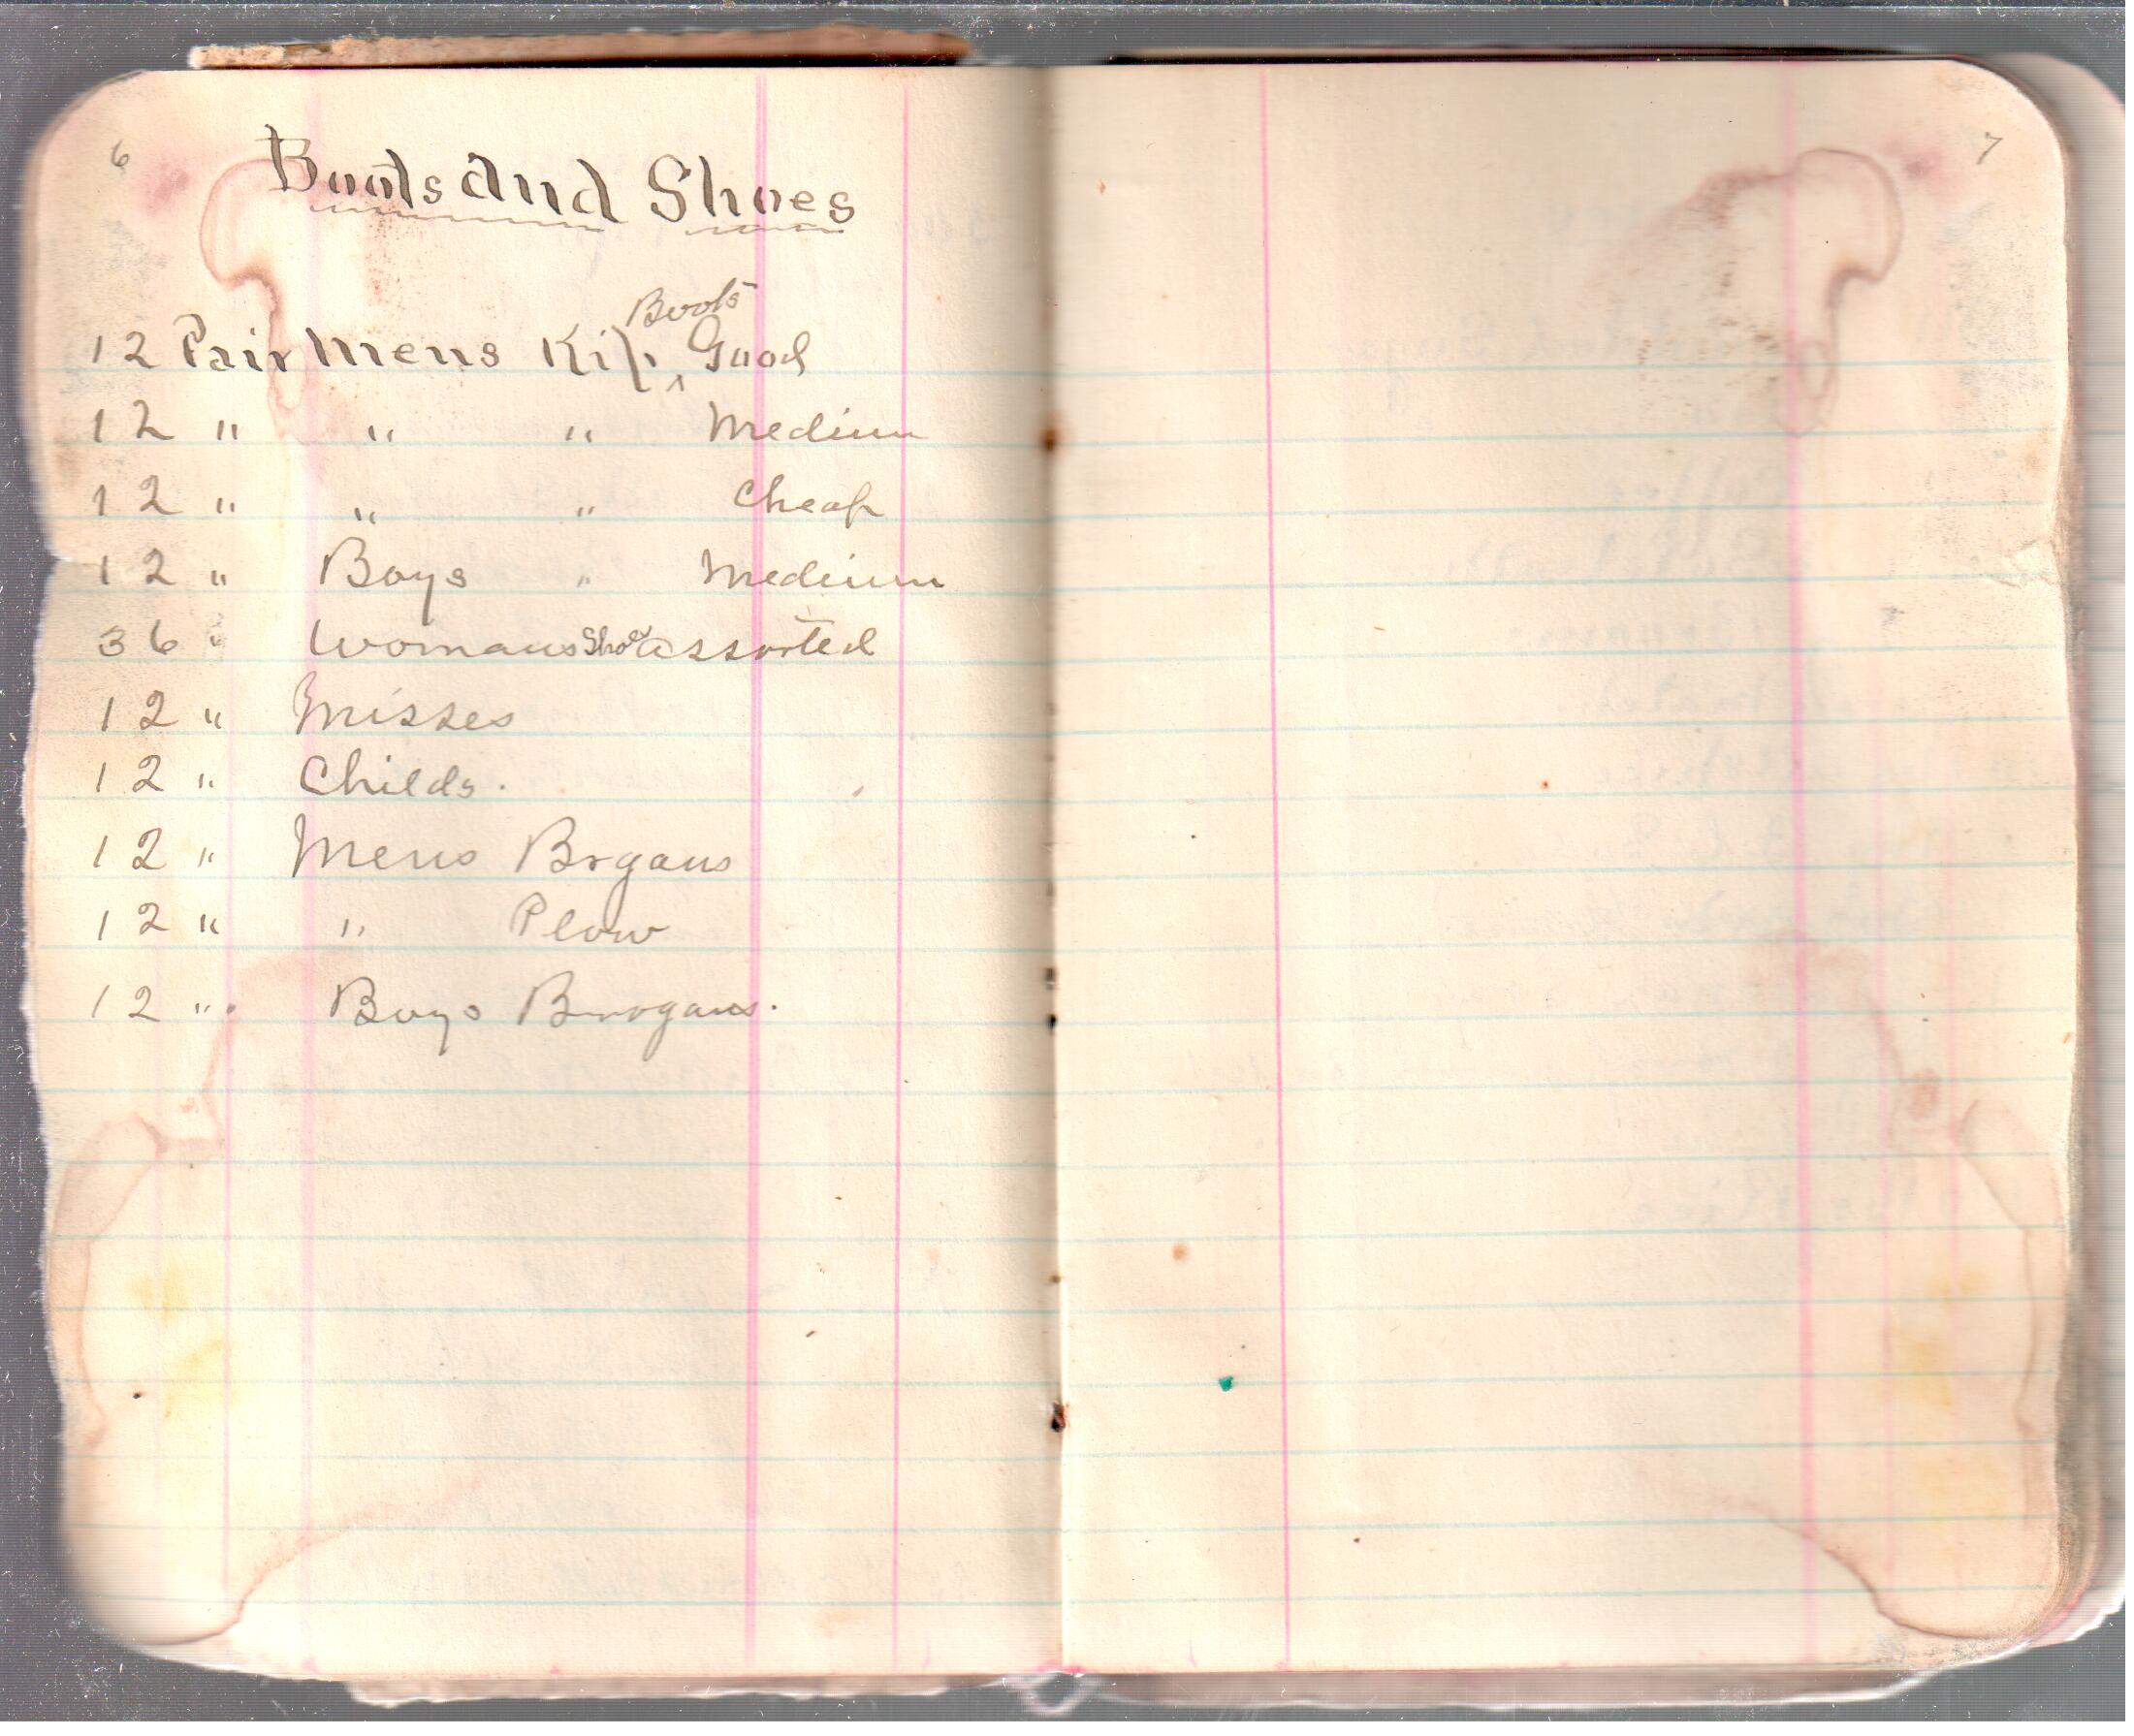 6
Boots and Shoes
12 Pair Mens Kip Boots Good
12 " " " Medium
12 " " " Cheap
12 " Boys " Medium
36 " Womans Shoes assorted
12 " Misses
12 " Childs.
12 " Mens Brgans
12 " " Plow
12 " Boys Brogans.
7